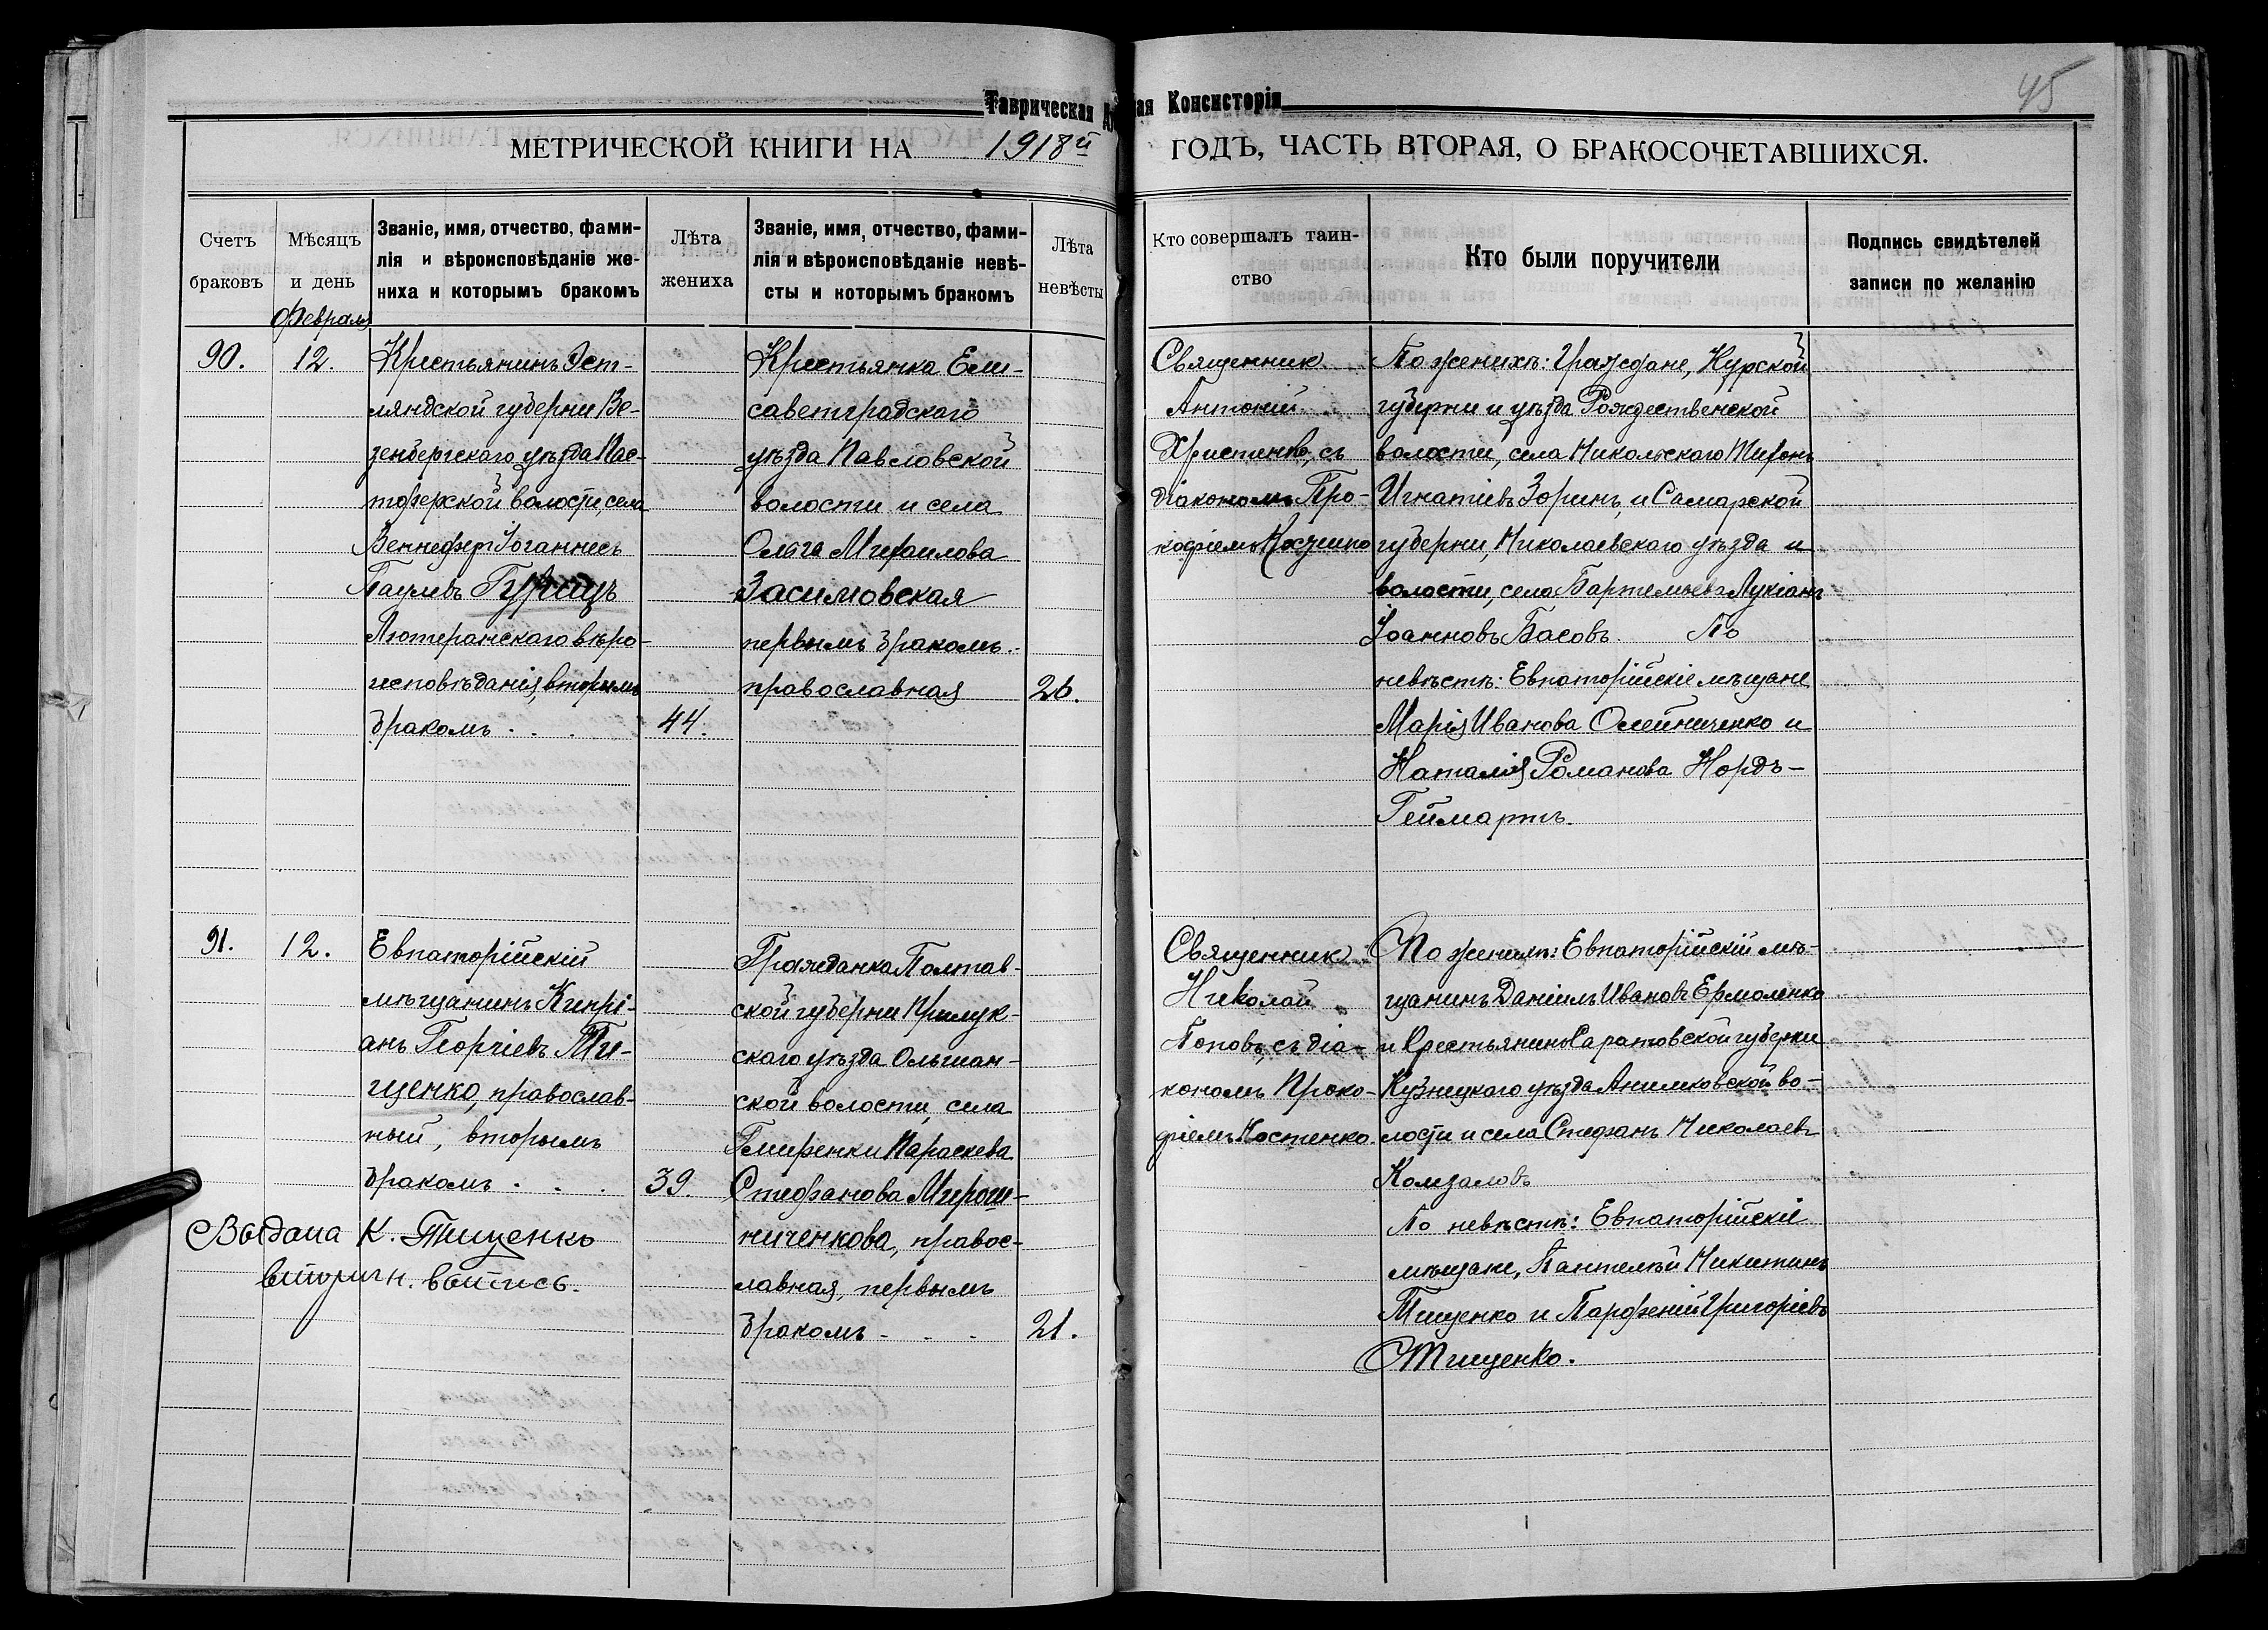 Таврическая
ая Консисторія
45
МЕТРИЧЕСКОЙ КНИГИ НА 1918й
ГОДЪ, ЧАСТЬ ВТОРАЯ, О БРАКОСОЧЕТАВШИХСЯ.
Счетъ браковъ
Мѣсяцъ и день
Званіе, имя, отчество, фами-
лія и вѣроисповѣданіе же-
ниха и которымъ бракомъ
Лѣта жениха
Званіе, имя, отчество, фами-
лія и вѣроисповѣданіе невѣ-
сты и которымъ бракомъ
Лѣта невѣсты
Кто совершалъ таин-
ство
Кто были поручители
Подпись свидѣтелей
записи по желанію
Февраля
90.
12.
Крестьянинъ Эст-
ляндской губерни Ве-
зенбергскаго уѣзда Пас-
тоферской волости, села
Веннефер Іоаннесъ
Паулевъ
Лютеранскаго вѣро-
исповѣданія, вторымъ
бракомъ . . .
44.
Крестьянка Ели-
саветградскаго
уѣзда Павловской
волости и села
Ольга Михаилова
Засимовская
первымъ бракомъ.
православная
26.
Священник
Антоній
Христенко, съ
діакономъ Про-
кофіемъ
По женихѣ: Граждане, Курской
губерни и уѣзда Рождественской
волости, села Никольскаго Тихонъ
Игнатіевъ Зоринъ, и Самарской
губерни, Николаевскаго уѣзда и
волости, села Бартеньева Лукіанъ
Іоанновъ Басовъ. По
невѣстѣ: Евпаторійскіе мѣщане
Марія Иванова Олейниченко и
Наталія Романова Нордъ-
Геймартъ.
91.
12.
Евпаторійскій
мѣщанинъ Кипрі-
анъ Георгіевъ Ти-
щенко, православ-
ный, вторымъ
бракомъ . . .
39.
Гражданка Полтав-
ской губерни Прилук-
скаго уѣзда Ольшан-
ской волости, села
Гмиренки Параскева
Стефанова Мирош-
ниченкова, правос-
лавная, первымъ
бракомъ . . .
21.
Священник
Николай
Поповъ, съ діа-
кономъ Проко-
фіемъ Костенко.
По женихѣ: Евпаторійскій мѣ-
щанинъ Даніилъ Ивановъ Ермоленко
и Крестьянинъ Саратовской губерни
Кузнецкаго уѣзда Анненковской во-
лости и села Стефанъ Николаевъ
Комзаловъ
По невѣстѣ: Евпаторійскіе
мѣщане, Пантелѣй Никитинъ
Тищенко и Парфеній Григоріевъ
Тищенко.
Выдана К. Тищенко
вторичн. выпись.